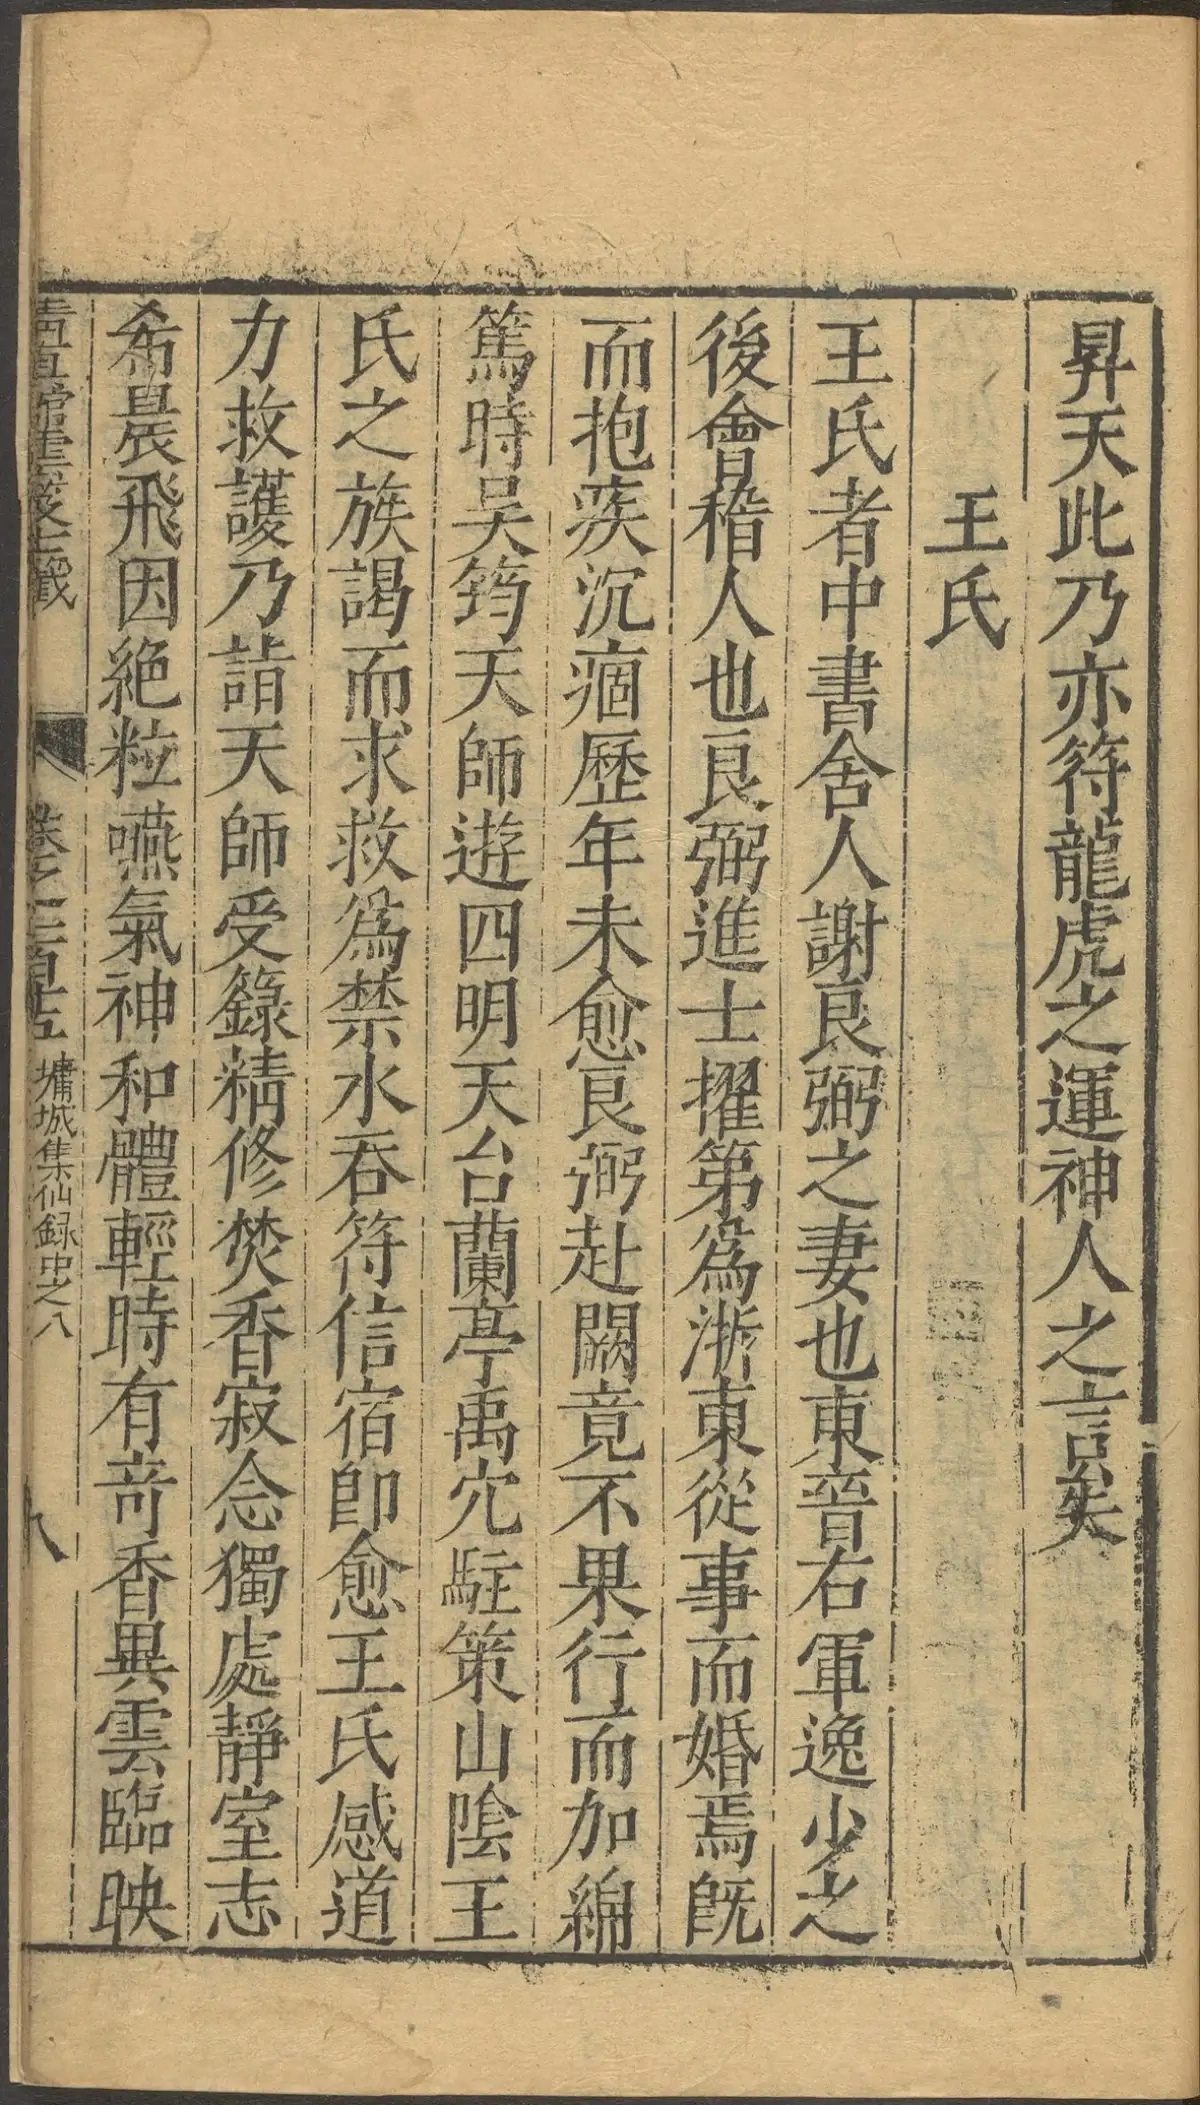 昇天此乃亦符龍虎之運神人之言矣
王氏
王氏者中書舍人謝良弼之妻也東晉右軍逸少之
後會稽人也良弼進士擢第爲浙東從事而婚焉既
而抱疾沉痼歷年未愈良弼赴闕竟不果行而加綿
篤時吳筠天師遊四明天台蘭亭禹穴駐策山陰王
氏之族謁而求救爲禁水吞符信宿即愈王氏感道
力救護乃詣天師受籙精修焚香寂念獨處靜室志
希晨飛因絶粒嚥氣神和體輕時有奇香異雲臨映
清真館雲笈七籤
卷之一百十五
墉城集仙録史之八
八